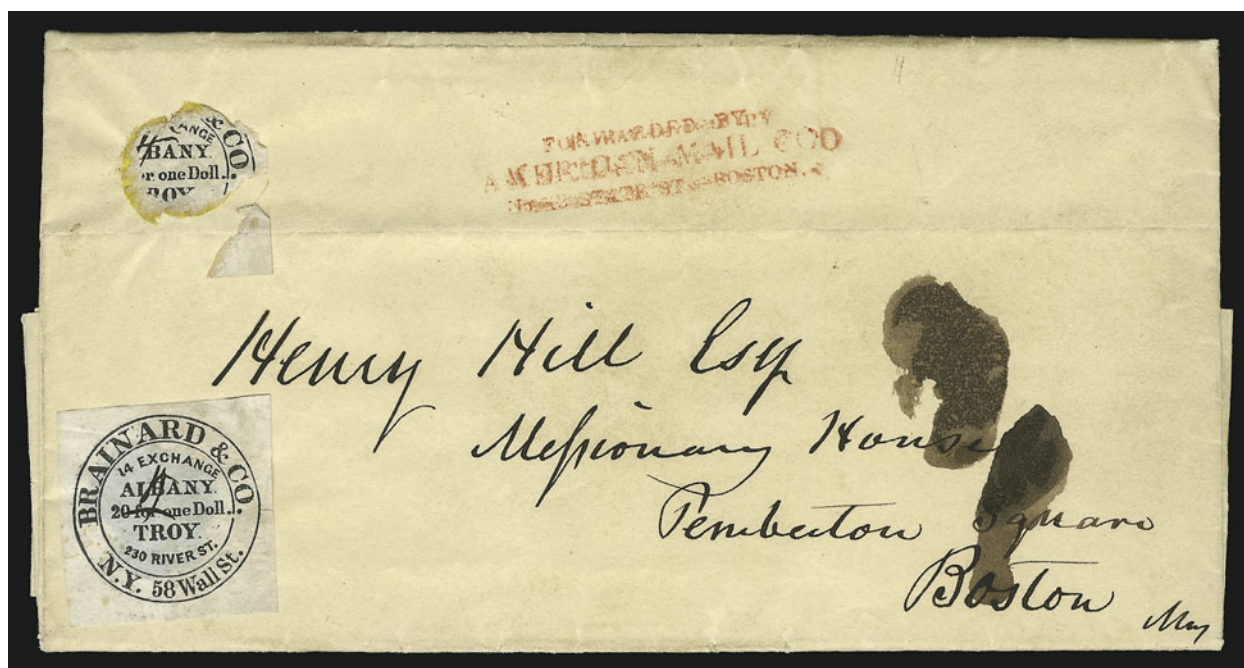 & CO
ANGE
BANY.
r one Doll.
ROY
FORWARDED BY
AMERICAN MAIL CO
STATE ST. BOSTON.
Henry Hill Esq
Missionary House
Pemberton Square
Boston
BRAINARD & CO.
14 EXCHANGE
ALBANY.
20 for one Doll.
TROY.
230 RIVER ST.
N.Y. 58 Wall St.